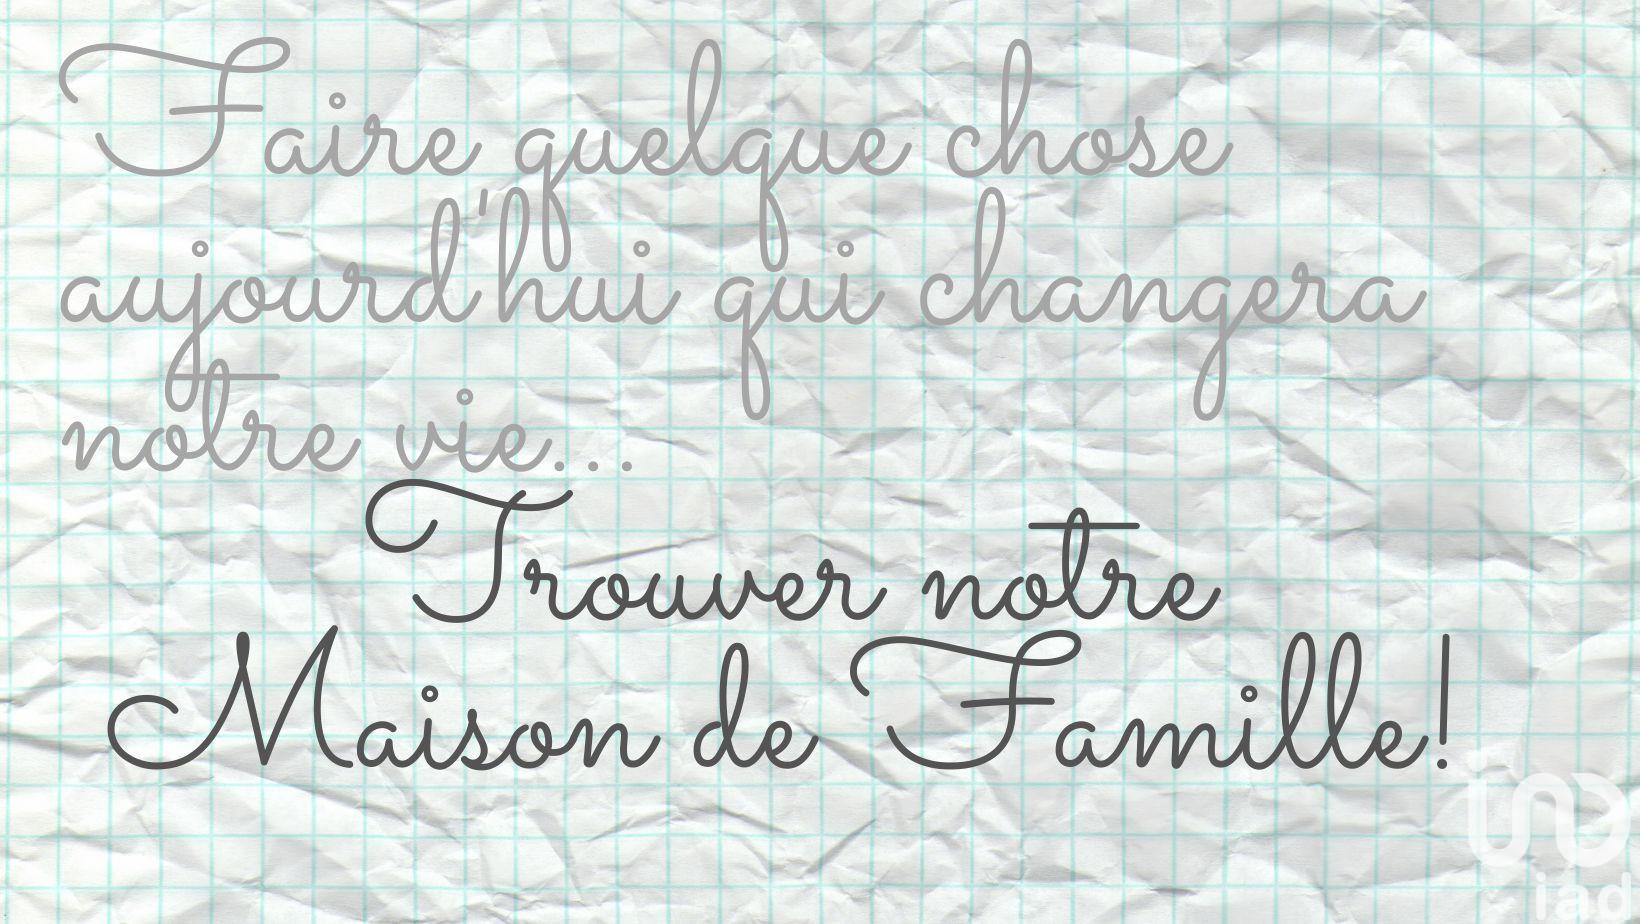 Faire quelque chose
aujourd'hui qui changera
notre vie...
Trouver notre
Maison de Famille!
iad